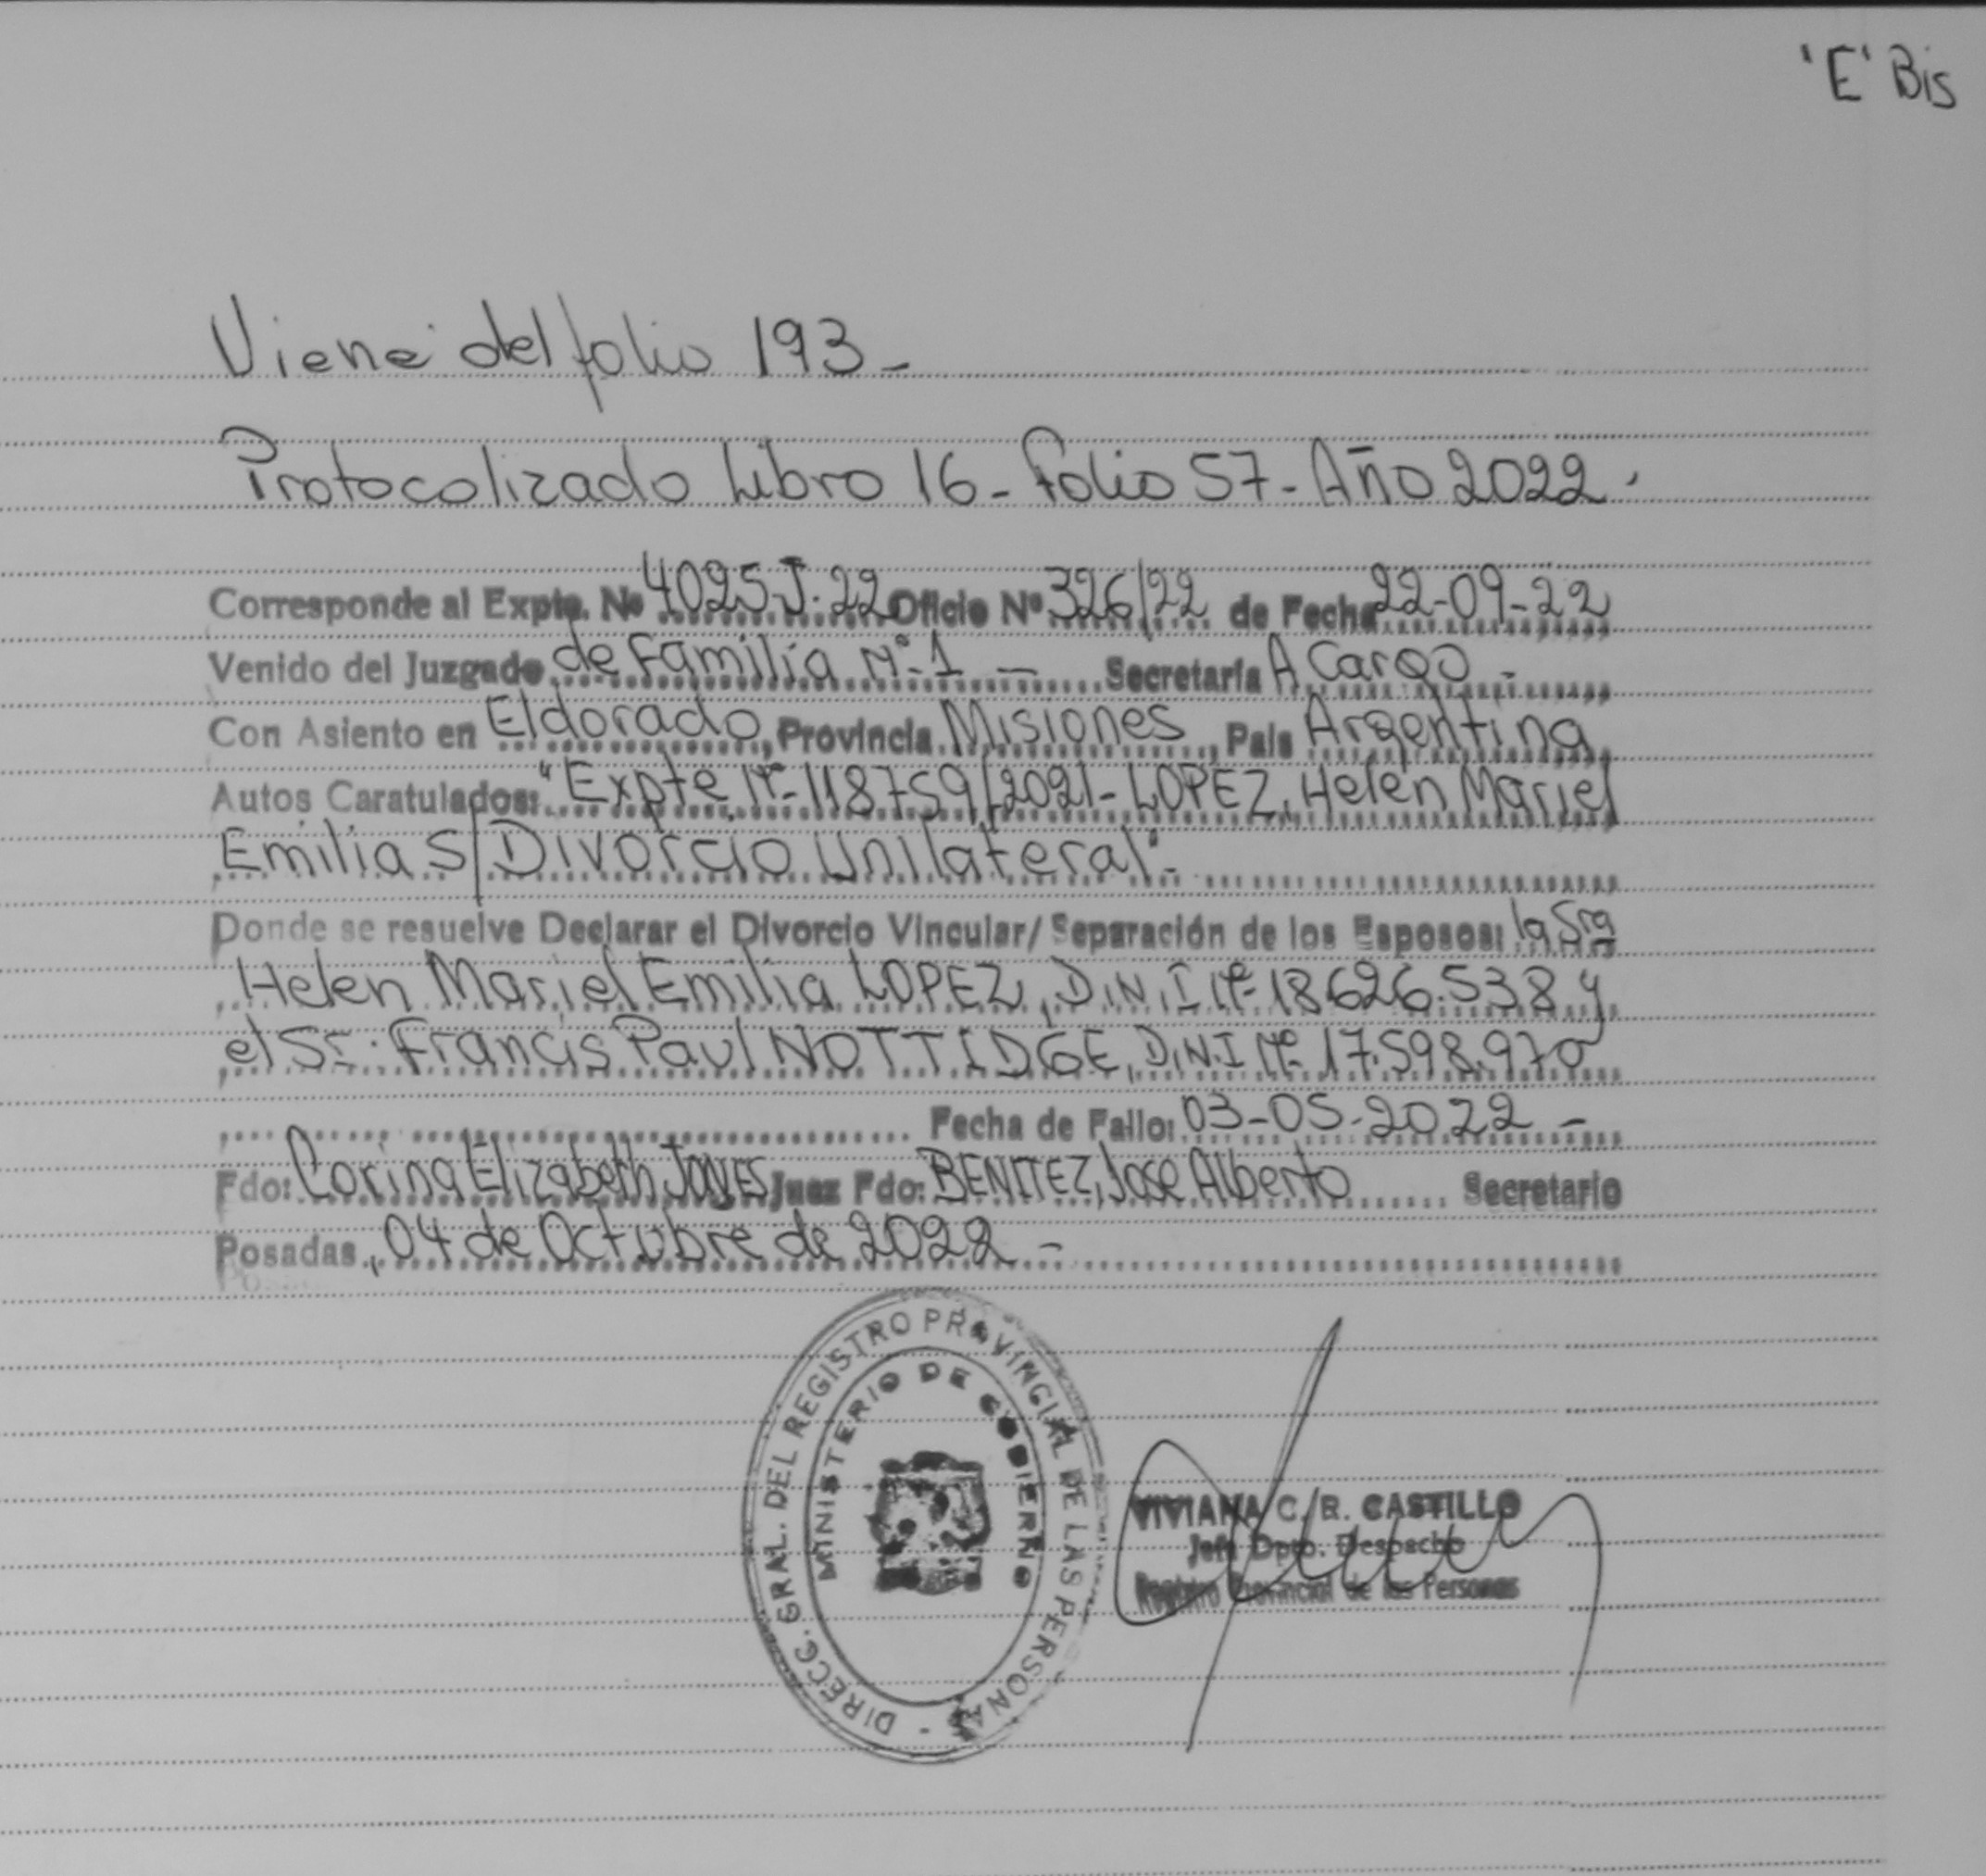 'E' Bis
Viene del folio 193_
Protocolizado Libro 16_ Folio 57_ Año 2022.
Corresponde al Expte. Nº 4025-J-22 Oficio Nº 326/22 de Fecha 22-09-22
Venido del Juzgado de Familia Nº 1 — Secretaría A Cargo -
Con Asiento en Eldorado, Provincia Misiones, País Argentina
Autos Caratulados: "Expte Nº-118759/2021- LOPEZ, Helen Mariel
Emilia S/ Divorcio Unilateral"-
Donde se resuelve Declarar el Divorcio Vincular/ Separación de los Esposos: la Sra
Helen Mariel Emilia LOPEZ, D.N.I Nº 18.626.538 y
el Sr. Francis Paul NOTTIDGE, D.N.I Nº 17.598.970
Fecha de Fallo: 03-05-2022 -
Fdo: Corina Elizabeth Juez Fdo: BENITEZ, Jose Alberto Secretario
Posadas, 04 de Octubre de 2022 -
DIRECC. GRAL. DEL REGISTRO PROVINCIAL DE LAS PERSONAS -
MINISTERIO DE GOBIERNO
VIVIANA C. R. CASTILLO
Jefa Dpto. Despacho
Registro Provincial de las Personas